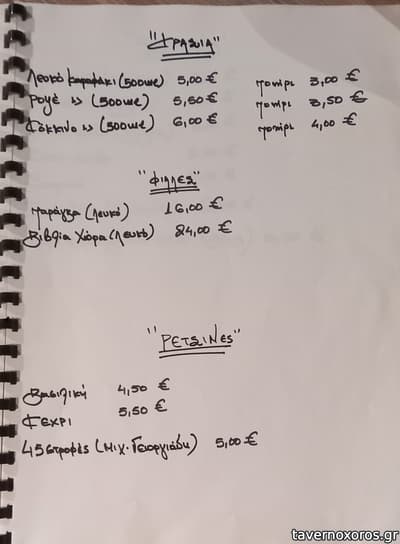 "ΚΡΑΣΙΑ"
Λευκό καραφάκι (500ml) 5,00 € ποτήρι 3,00 €
Ροζέ » (500ml) 5,50 € ποτήρι 3,50 €
Κόκκινο » (500ml) 6,00 € ποτήρι 4,00 €
"ΦΙΑΛΕΣ"
Παράγκα (λευκό) 16,00 €
Βιβλία Χώρα (λευκό) 24,00 €
"ΡΕΤΣΙΝΕΣ"
Βασιλική 4,50 €
ΚΕΧΡΙ 5,50 €
45 στροφές (Μιχ. Γεωργιάδη) 5,00 €
tavernoxoros.gr